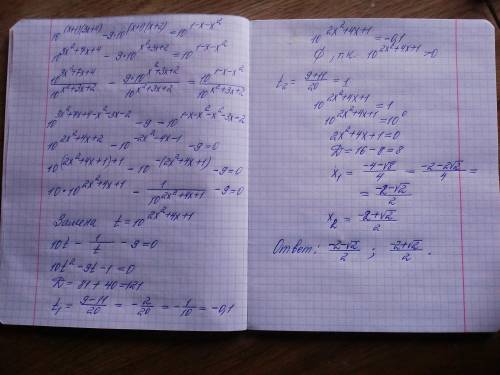 10^((x+1)(3x+4)) - 9·10^((x+1)(x+2)) = 10^(1-x-x²)
10^(3x²+7x+4) - 9·10^(x²+3x+2) = 10^(1-x-x²)
10^(3x²+7x+4)/10^(x²+3x+2) - 9·10^(x²+3x+2)/10^(x²+3x+2) = 10^(1-x-x²)/10^(x²+3x+2)
10^(3x²+7x+4-x²-3x-2) - 9 = 10^(1-x-x²-x²-3x-2)
10^(2x²+4x+2) - 10^(-2x²-4x-1) - 9=0
10^((2x²+4x+1)+1) - 10^(-(2x²+4x+1)) - 9=0
10·10^(2x²+4x+1) - 1/10^(2x²+4x+1) - 9=0
Замена t=10^(2x²+4x+1)
10t - 1/t - 9=0
10t²-9t-1=0
D=81+40=121
t₁ = (9-11)/20 = -2/20 = -1/10 = -0,1
10^(2x²+4x+1) = -0,1
∅, т.к. 10^(2x²+4x+1) >0
t₂ = (9+11)/20 = 1
10^(2x²+4x+1) = 1
10^(2x²+4x+1) = 10⁰
2x²+4x+1=0
D=16-8=8
x₁ = (-4-√8)/4 = (-2-2√2)/4 =
= (-2-√2)/2
x₂ = (-2+√2)/2
Ответ: (-2-√2)/2 ; (-2+√2)/2.